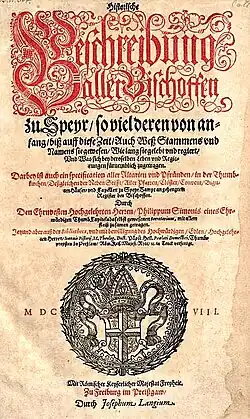 Historische
Beschreibung
aller Bischoffen
zu Speyr / so viel deren von an-
fang / biß auff diese Zeit / Auch Weß Stammens und
Namens sie gewesen / Wie lang sie gelebt und regiert /
Und Was sich bey derselben Leben und Regie-
rungen fürnemblich zugetragen.
Darbey ist auch ein specification aller Altarien und Pfründen / in der Thumb-
Kirchen / Desgleichen der Neben Stifft / Aller Pfarren / Clöster /
Häuser und Capellen zu Speyr
Register der Bischoffen.
Durch
Den Ehrnhafften Hochgelehrten Herren / Philippum Simonis eines Ehr-
würdigen Thumb Capituls daselbst gewesenen
fleiß zusamen getragen.
M DC VIII.
Mit Römischer Keyserlicher Majestat Freyheit.
Zu Freiburg im Preißgaw /
Durch Josephum Langium.